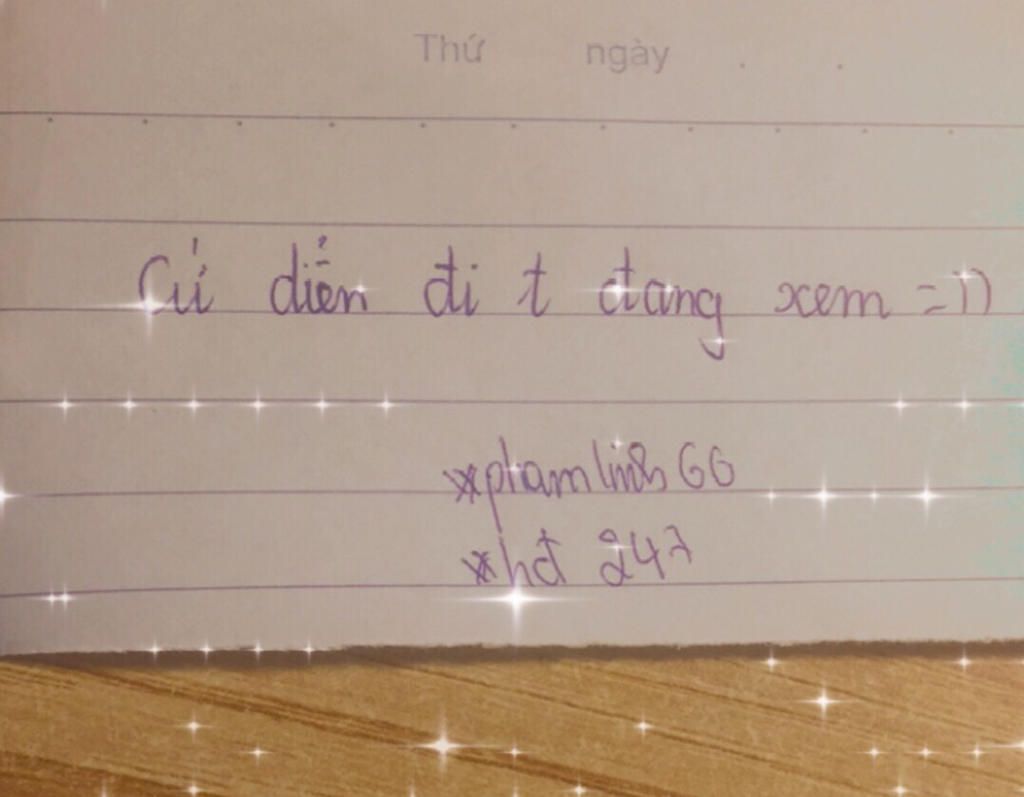 Thứ ngày
Cứ diễn đi t đang xem =))
*phamlinh GG
*hđ 247